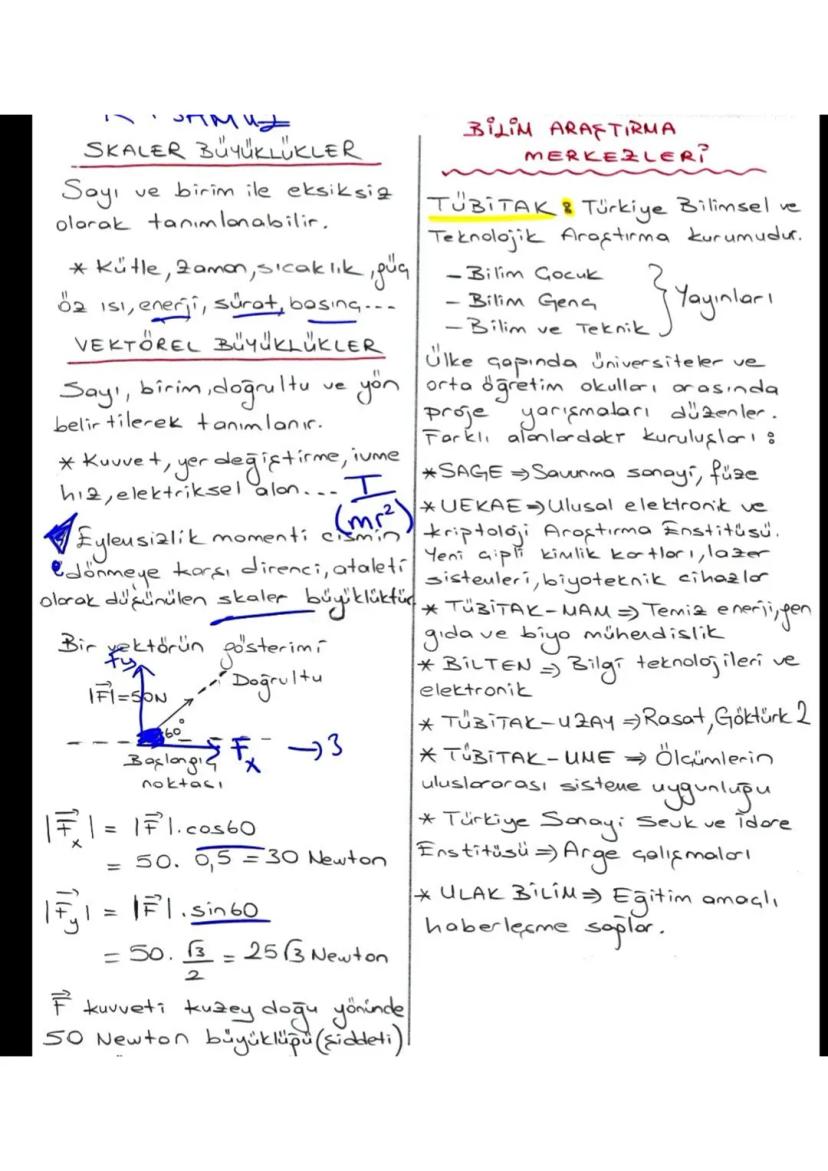 SKALER BÜYÜKLÜKLER
Sayı ve birim ile eksiksiz
olarak tanımlanabilir.
* Kütle, zaman, sıcaklık, güç
öz ısı, enerji, sürat, basınç...
VEKTÖREL BÜYÜKLÜKLER
Sayı, birim, doğrultu ve yön
belirtilerek tanımlanır.
* Kuvvet, yer değiştirme, ivme
hız, elektriksel alan...
I
(mr²)
Eylemsizlik momenti cismin
dönmeye karşı direnci, ataleti
olarak düşünülen skaler büyüklüktür
Bir vektörün gösterimi
Fy
Doğrultu
|F⃗|=50N
60°
Fx → 3
Başlangıç
noktası
|F⃗x| = |F⃗|.cos60
= 50. 0,5 = 30 Newton
|F⃗y| = |F⃗|.sin60
= 50. √3/2 = 25√3 Newton
F⃗ kuvveti kuzey doğu yönünde
50 Newton büyüklüğü (şiddeti)
BİLİM ARAŞTIRMA
MERKEZLERİ
TÜBİTAK : Türkiye Bilimsel ve
Teknolojik Araştırma kurumudur.
- Bilim Çocuk
- Bilim Genç
- Bilim ve Teknik
} Yayınları
Ülke çapında üniversiteler ve
orta öğretim okulları arasında
proje yarışmaları düzenler.
Farklı alanlardaki kuruluşları :
* SAGE ⇒ Savunma sanayi, füze
* UEKAE ⇒ Ulusal elektronik ve
kriptoloji Araştırma Enstitüsü.
Yeni çipli kimlik kartları, lazer
sistemleri, biyoteknik cihazlar
* TÜBİTAK-MAM ⇒ Temiz enerji, gen
gıda ve biyo mühendislik
* BİLTEN ⇒ Bilgi teknolojileri ve
elektronik
* TÜBİTAK-UZAY ⇒ Rasat, Göktürk 2
* TÜBİTAK-UME ⇒ Ölçümlerin
uluslararası sisteme uygunluğu
* Türkiye Sanayi Sevk ve İdare
Enstitüsü ⇒ Arge çalışmaları
* ULAK BİLİM ⇒ Eğitim amaçlı
haberleşme sağlar.